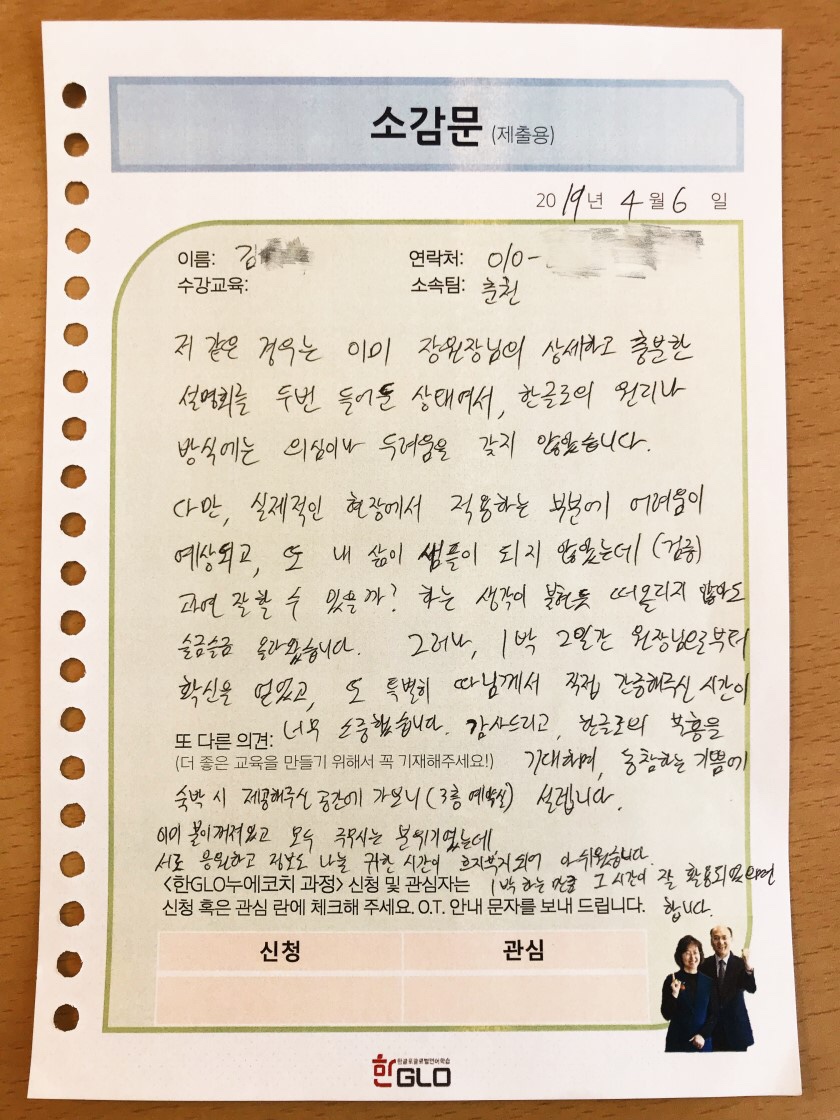 소감문 (제출용)
2019년 4월 6일
이름: 김 연락처: 010-
수강교육: 소속팀: 춘천
저 같은 경우는 이미 장원장님의 상세하고 충분한
설명회를 두번 들어둔 상태여서, 한글로의 원리나
방식에는 의심이나 두려움을 갖지 않았습니다.
다만, 실제적인 현장에서 적용하는 부분에 어려움이
예상되고, 또 내 삶이 샘플이 되지 않았는데 (검증)
과연 잘할 수 있을까? 하는 생각이 불현듯 떠올리지 않아도
슬금슬금 올라왔습니다. 그러나, 1박 2일간 원장님으로부터
확신을 얻었고, 또 특별히 따님께서 직접 간증해주신 시간이
너무 소중했습니다. 감사드리고, 한글로의 부흥을
또 다른 의견:
(더 좋은 교육을 만들기 위해서 꼭 기재해주세요!) 기대하며, 동참하는 기쁨에
숙박 시 제공해주신 공간에 가보니 (3층 예배실) 설렙니다.
이미 불이 꺼져있고 모두 주무시는 분위기였는데
서로 응원하고 정보도 나눌 귀한 시간이 흐지부지되어 아쉬웠습니다.
<한GLO누에코치 과정> 신청 및 관심자는 1박 하는 만큼 그 시간이 잘 활용되었으면
신청 혹은 관심 란에 체크해 주세요. O.T. 안내 문자를 보내 드립니다. 합니다.
신청 관심
한글로글로벌언어학습
한GLO